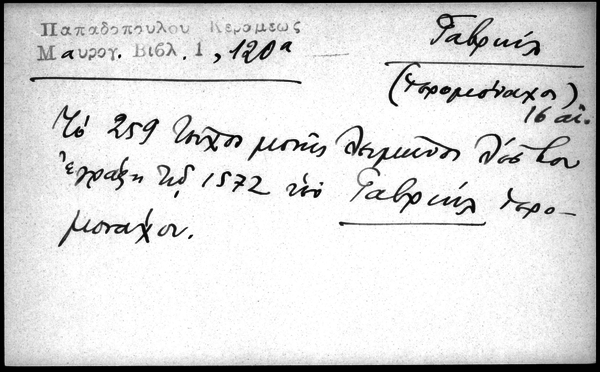 Παπαδοπουλου Κεραμεως
Μαυρογ. Βιβλ. 1, 120α
Γαβριήλ
(ἱερομόναχος)
16 αἰ.
Τὸ 259 τεῦχος μονῆς Λειμῶνος Λέσβου
ἐγράφη τῷ 1572 ὑπὸ Γαβριήλ ἱερο-
μονάχου.